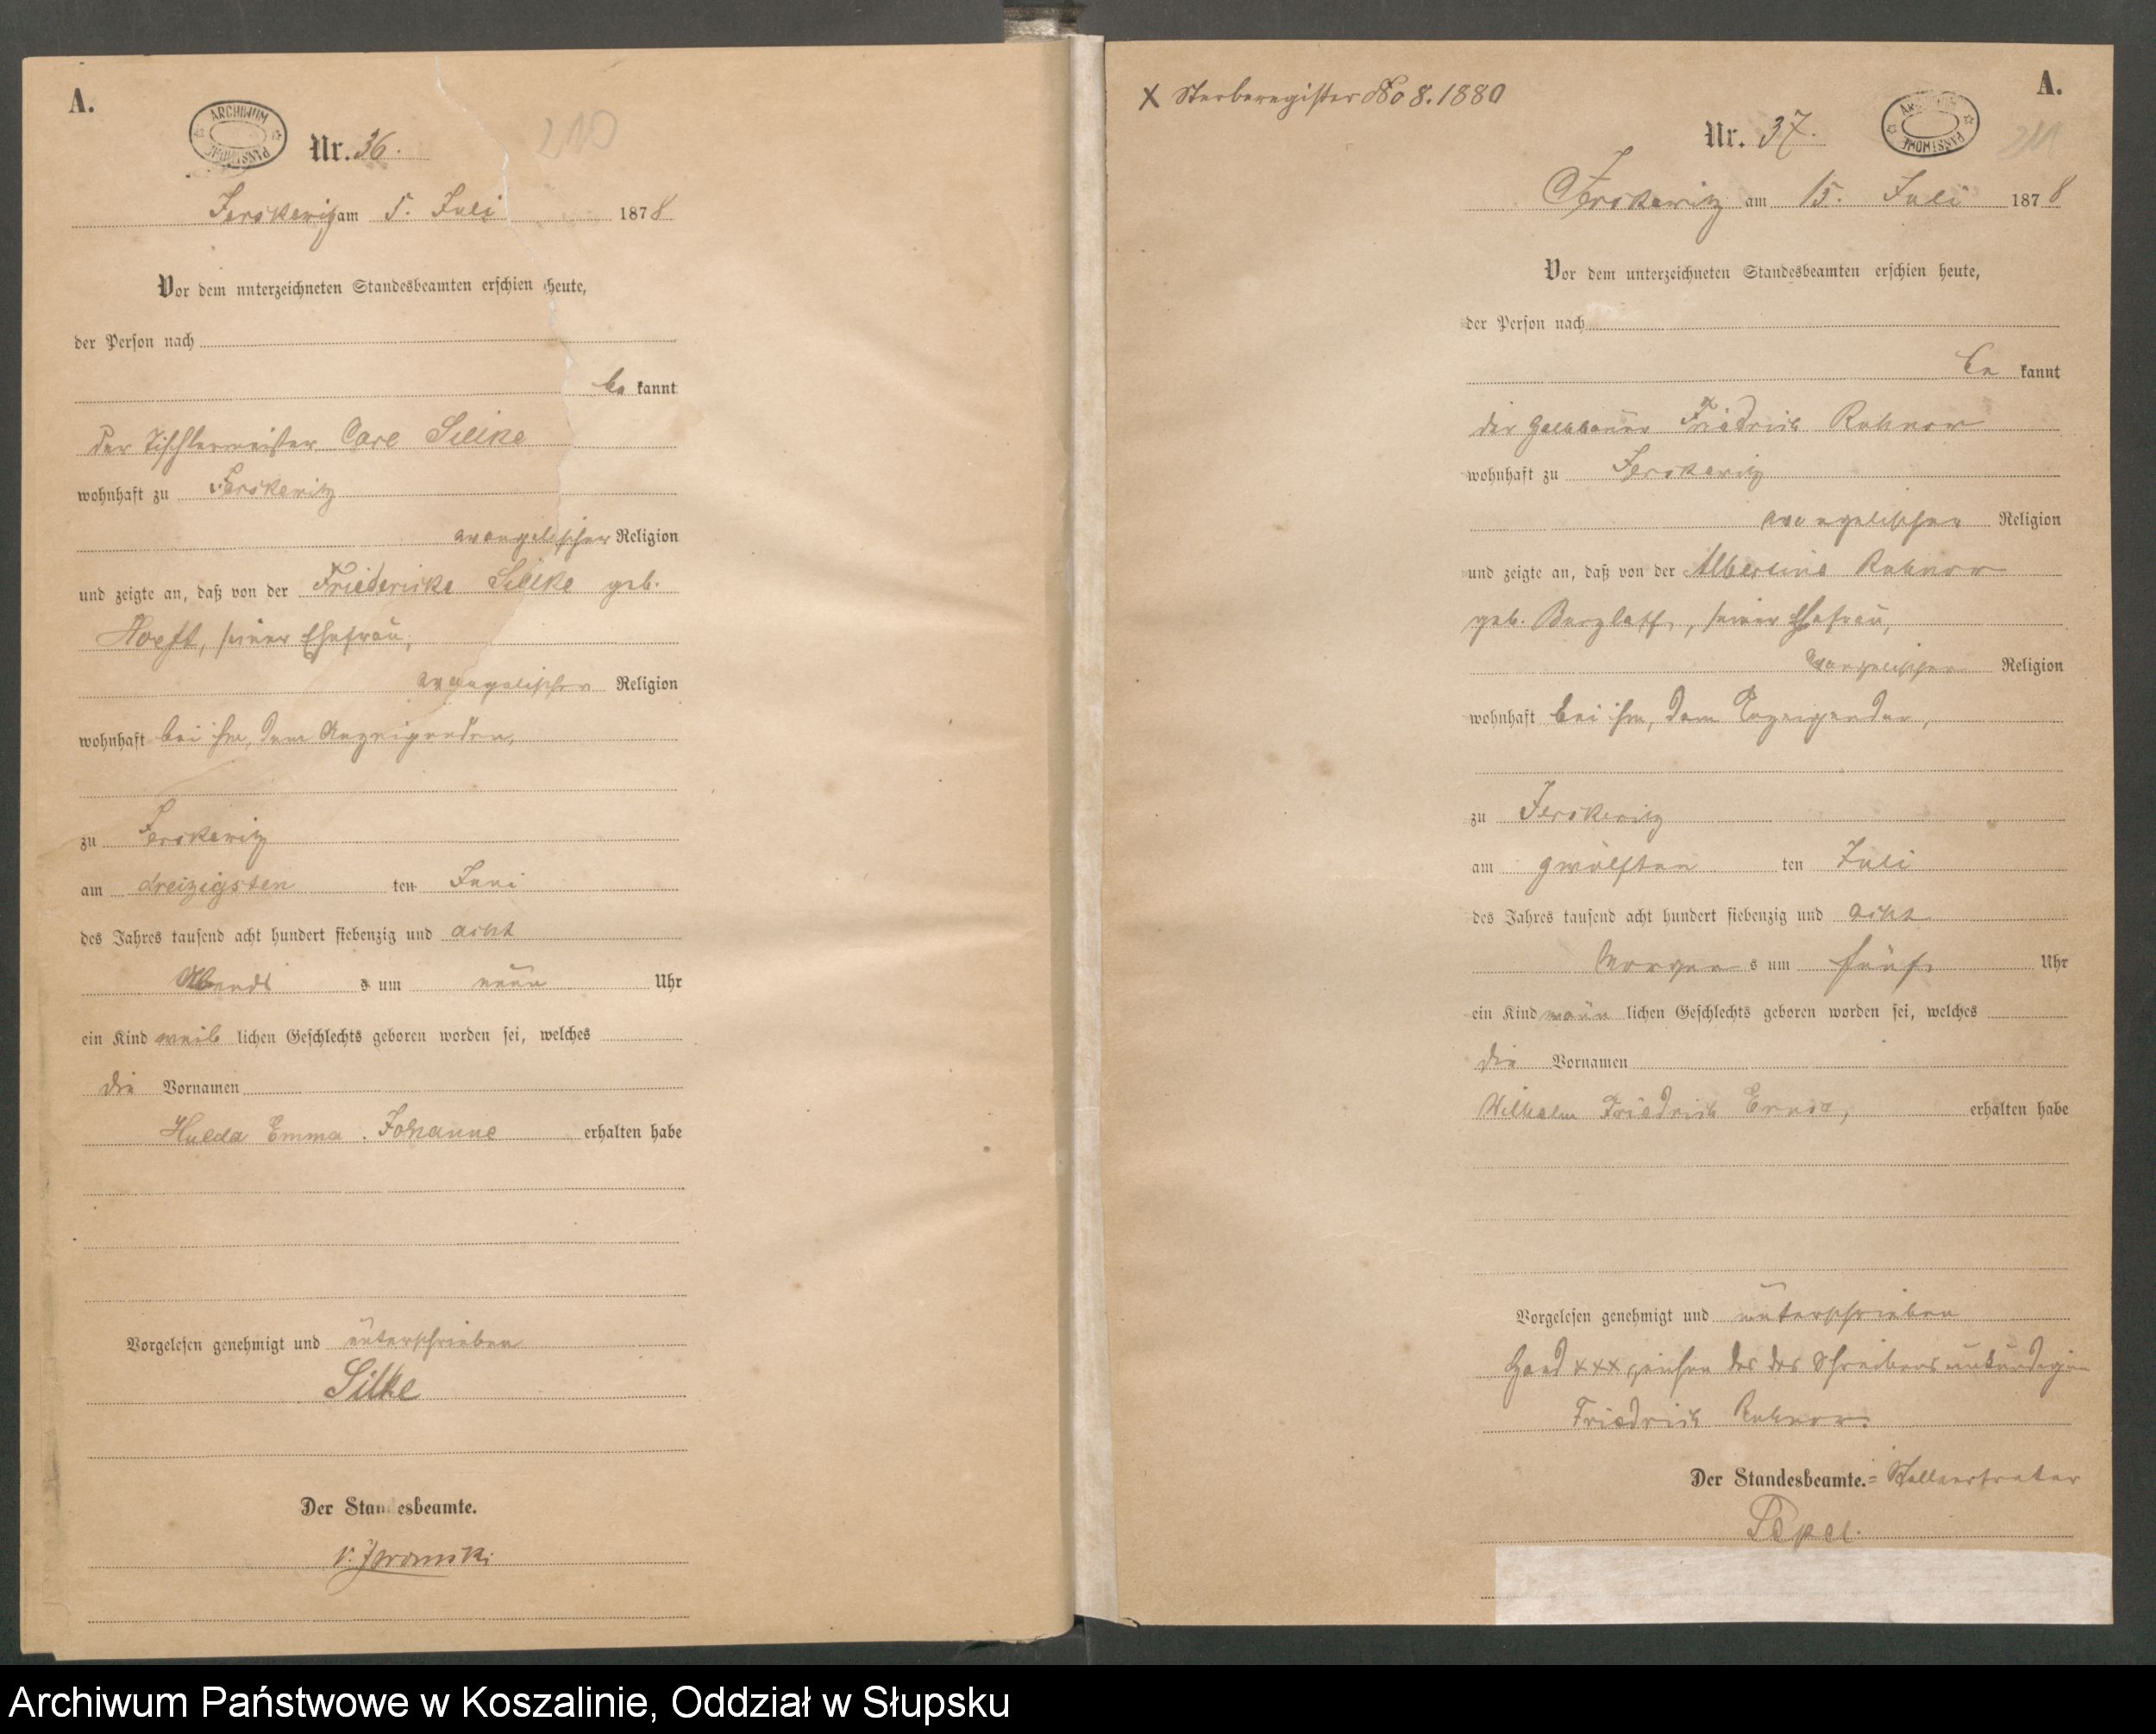 A.
ARCHIWUM PAŃSTWOWE
Nr. 36.
210
Jerskewitz am 5. Juli 1878
Vor dem unterzeichneten Standesbeamten erschien heute,
der Person nach
be kannt
der Tischlermeister Carl Sielke
wohnhaft zu Jerskewitz
evangelischer Religion
und zeigte an, daß von der Friedericke Sielke geb.
Hoeft, seiner Ehefrau,
evangelischer Religion
wohnhaft bei ihm, dem Anzeigenden,
zu Jerskewitz
am dreizigsten ten Juni
des Jahres tausend acht hundert siebenzig und acht
Abends um neun Uhr
ein Kind weib lichen Geschlechts geboren worden sei, welches
die Vornamen
Hulda Emma Johanne erhalten habe
Vorgelesen genehmigt und unterschrieben
Silke
Der Standesbeamte.
X Sterberegister No 8. 1880
A.
Nr. 37.
ARCHIWUM PAŃSTWOWE
211
Jerskewitz am 15. Juli 1878
Vor dem unterzeichneten Standesbeamten erschien heute,
der Person nach
be kannt
der Halbbauer Friedrich Ruhnow
wohnhaft zu Jerskewitz
evangelischer Religion
und zeigte an, daß von der Albertine Ruhnow
geb. Barzlaff, seiner Ehefrau,
evangelischer Religion
wohnhaft bei ihm, dem Anzeigenden,
zu Jerskewitz
am zwölften ten Juli
des Jahres tausend acht hundert siebenzig und acht
Morgen s um fünf Uhr
ein Kind männ lichen Geschlechts geboren worden sei, welches
die Vornamen
Wilhelm Friedrich Ernst, erhalten habe
Vorgelesen genehmigt und unterschrieben
Hand xxx zeichen des des Schreibens unkundigen
Friedrich Ruhnow.
Der Standesbeamte. = Stellvertreter
Papel.
Archiwum Państwowe w Koszalinie, Oddział w Słupsku